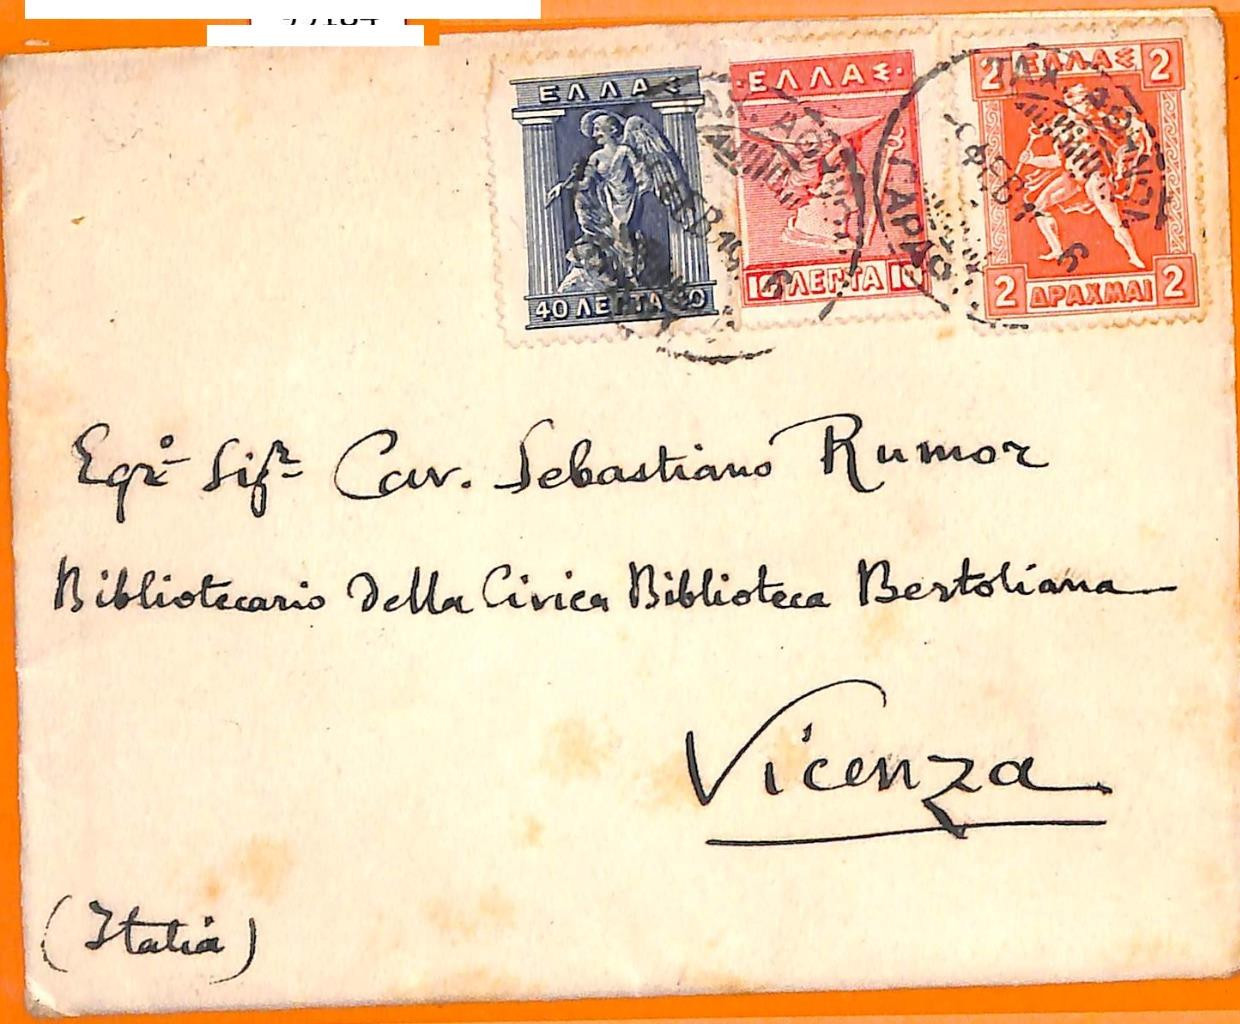 ΕΛΛΑΣ
40 ΛΕΠΤΑ 40
ΕΛΛΑΣ
10 ΛΕΠΤΑ 10
2 ΕΛΛΑΣ 2
2 ΔΡΑΧΜΑΙ 2
Egrº Sigr Cav. Sebastiano Rumor
Bibliotecario della Civica Biblioteca Bertoliana
Vicenza
(Italia)